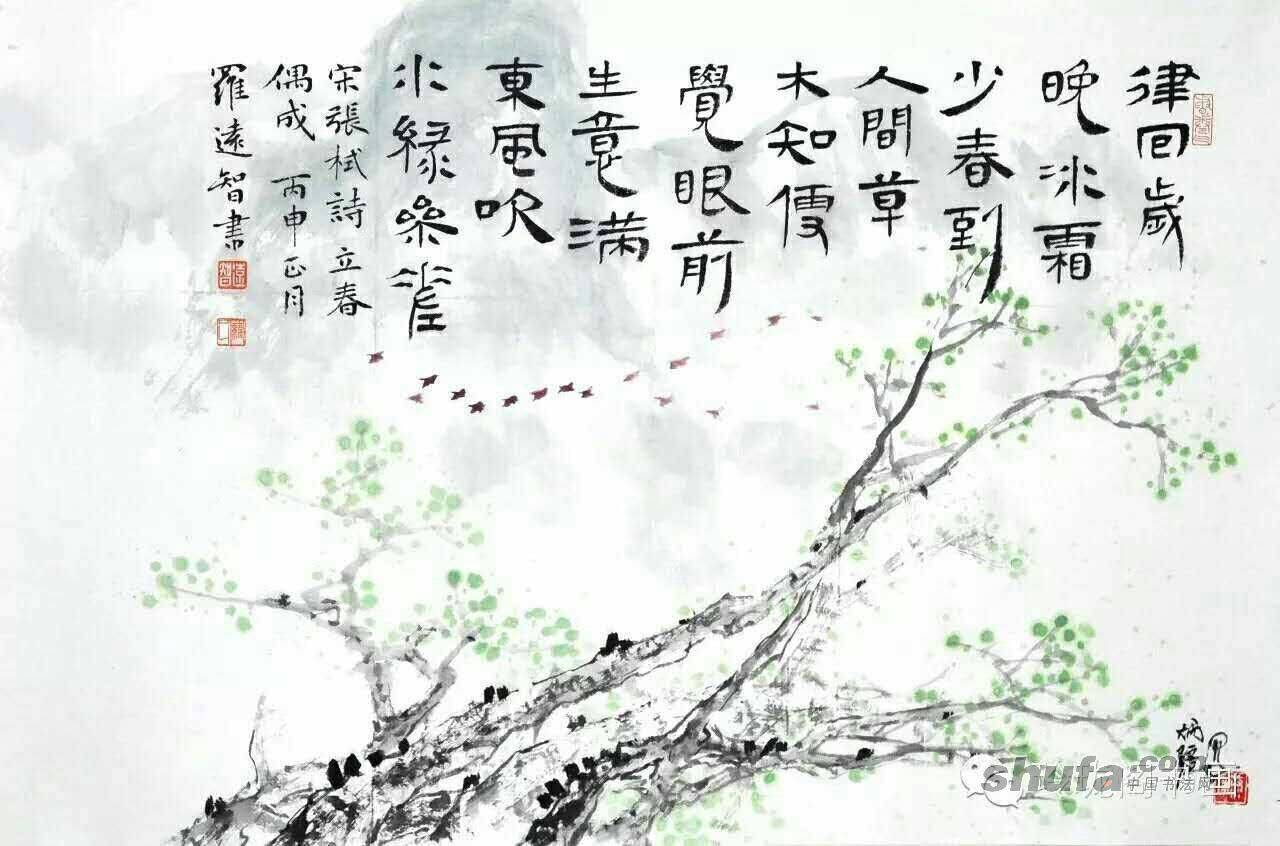 律回歲
晚冰霜
少春到
人間草
木知便
覺眼前
生意满
東風吹
水緑參差
宋張栻詩 立春
偶成 丙申正月
羅遠智書
遠智
shufa.com
中国书法网